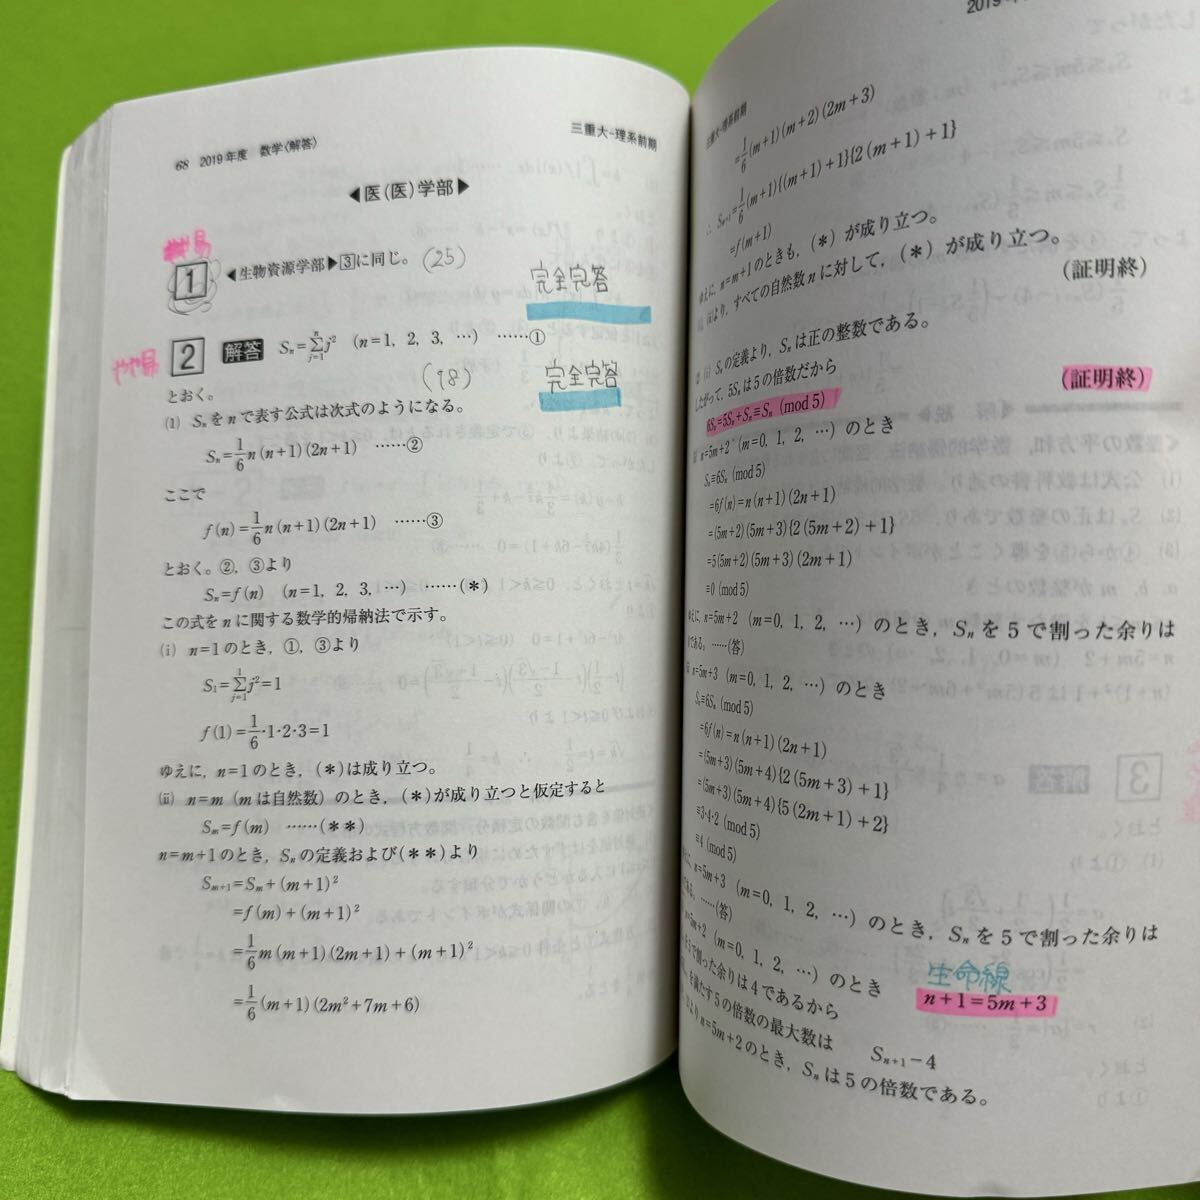 68 2019年度 数学〈解答〉
三重大-理系前期
◀医(医)学部▶
易
1 ◀生物資源学部▶3に同じ。 (25)
完全完答
やや易
2 解答 Sₙ=Σj² (n=1, 2, 3, …) ……①
(18) 完全完答
とおく。
(1) Sₙをnで表す公式は次式のようになる。
Sₙ=1/6 n(n+1)(2n+1) ……②
ここで
f(n)=1/6 n(n+1)(2n+1) ……③
とおく。②, ③より
Sₙ=f(n) (n=1, 2, 3, …) ……(*)
この式をnに関する数学的帰納法で示す。
(i) n=1のとき, ①, ③より
S₁=Σj²=1
f(1)=1/6・1・2・3=1
ゆえに, n=1のとき, (*)は成り立つ。
(ii) n=m (mは自然数) のとき, (*)が成り立つと仮定すると
Sₘ=f(m) ……(**)
n=m+1のとき, Sₙの定義および(**)より
Sₘ₊₁=Sₘ+(m+1)²
=f(m)+(m+1)²
=1/6 m(m+1)(2m+1)+(m+1)²
=1/6 (m+1)(2m²+7m+6)
三重大-理系前期
=1/6 (m+1)(m+2)(2m+3)
∴ Sₘ₊₁=1/6 (m+1){(m+1)+1}{2(m+1)+1}
=f(m+1)
ゆえに, n=m+1のときも, (*)が成り立つ。
より, すべての自然数nに対して, (*)が成り立つ。
(証明終)
Sₙの定義より, Sₙは正の整数である。
したがって, 5Sₙは5の倍数だから
6Sₙ=5Sₙ+Sₙ≡Sₙ (mod 5)
(証明終)
n=5m+2 (m=0, 1, 2, …) のとき
Sₙ≡6Sₙ (mod 5)
=6f(n)=n(n+1)(2n+1)
=(5m+2)(5m+3){2(5m+2)+1}
=5(5m+2)(5m+3)(2m+1)
≡0 (mod 5)
ゆえに, n=5m+2 (m=0, 1, 2, …) のとき, Sₙを5で割った余りは
である。……(答)
n=5m+3 (m=0, 1, 2, …) のとき
Sₙ≡6Sₙ (mod 5)
=6f(n)=n(n+1)(2n+1)
=(5m+3)(5m+4){2(5m+3)+1}
=(5m+3)(5m+4){5(2m+1)+2}
≡3・4・2 (mod 5)
≡4 (mod 5)
n=5m+3 (m=0, 1, 2, …) のとき, Sₙを5で割った余りは
である。……(答)
=5m+2 (m=0, 1, 2, …) のとき
生命線
n+1=5m+3
を5で割った余りは4であるから
を満たす5の倍数の最大数は Sₙ₊₁-4
よりn=5m+2のとき, Sₙは5の倍数である。